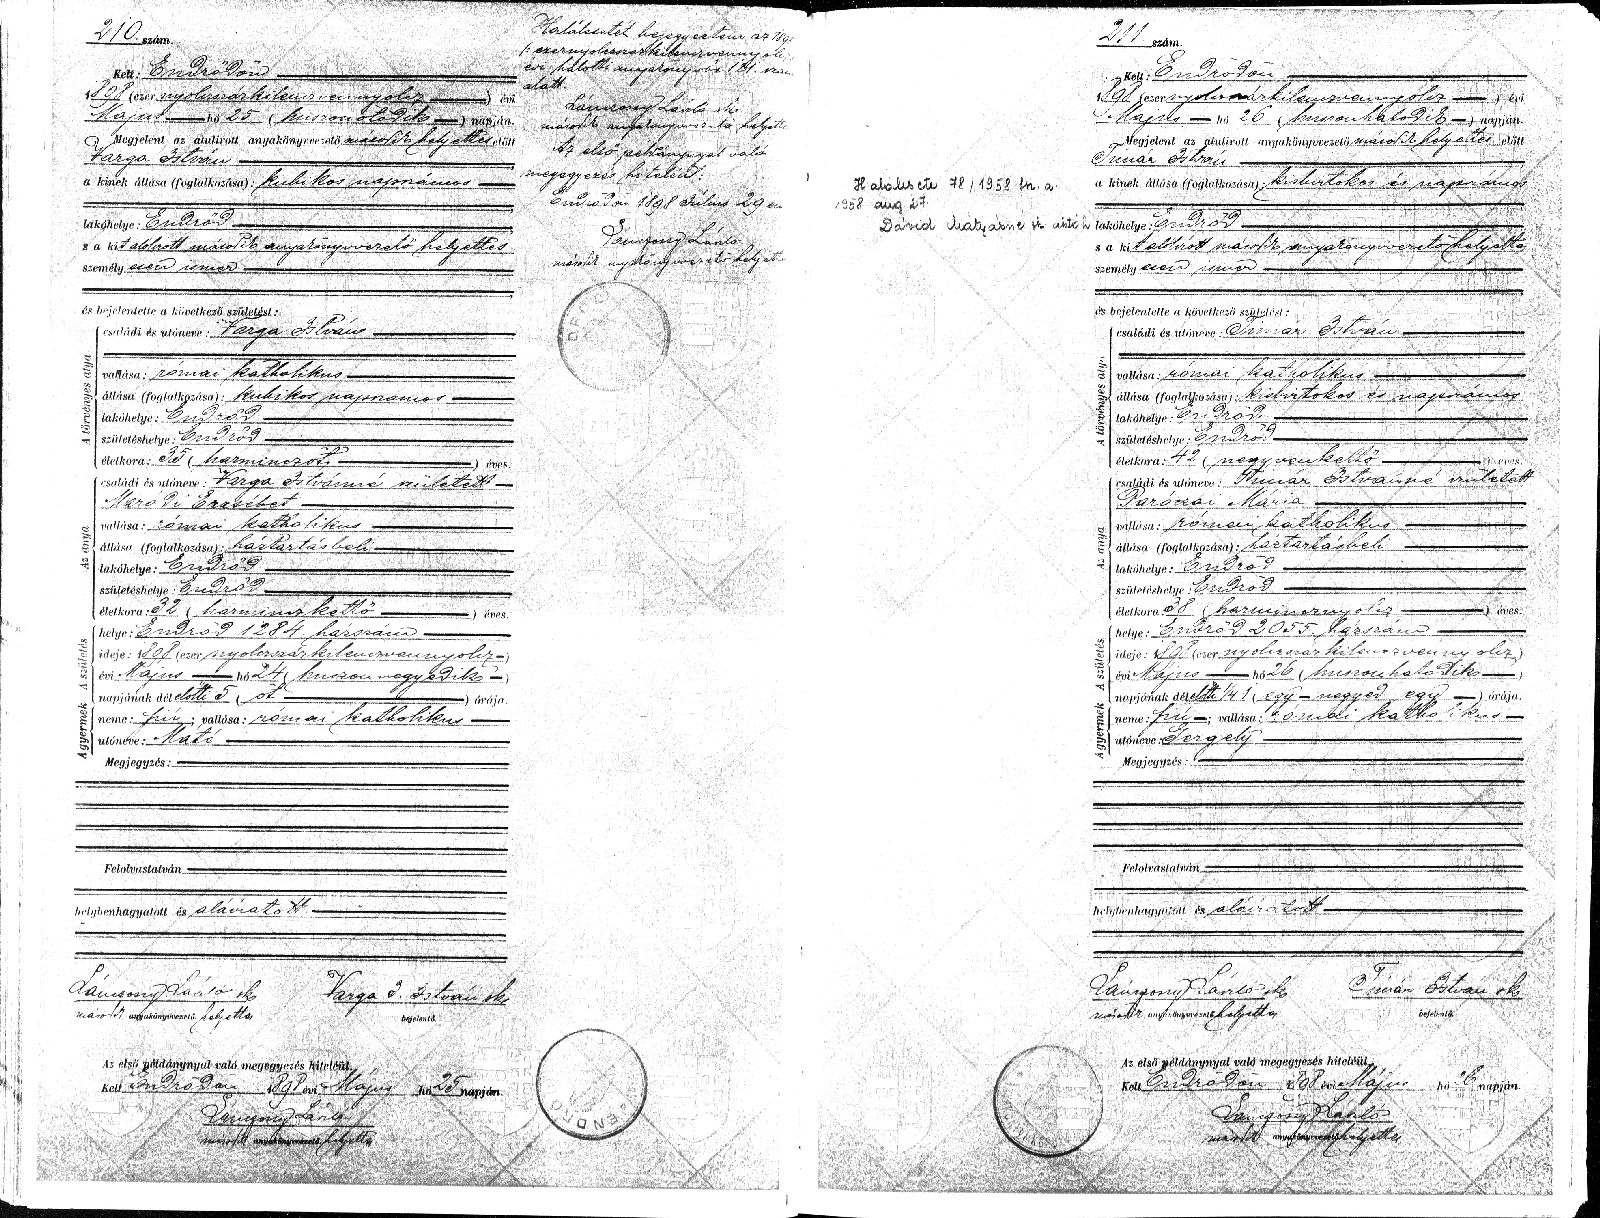 210. szám.
Kelt: Endrődön
1898 (ezer nyolczszázkilenczvennyolcz) évi
Május hó 25 (huszonötödik) napján.
Megjelent az alulirott anyakönyvezető második helyettes előtt
Varga István
a kinek állása (foglalkozása): kubikos napszámos
lakóhelye: Endrőd
s a kit alulirott második anyakönyvvezető helyettes
személyesen ismer
és bejelentette a következő születést:
A törvényes atya
családi és utóneve: Varga István
vallása: római katholikus
állása (foglalkozása): kubikos napszámos
lakóhelye: Endrőd
születéshelye: Endrőd
életkora: 35 (harminczöt) éves.
Az anya
családi és utóneve: Varga Istvánné született
Erzsébet
vallása: római katholikus
állása (foglalkozása): háztartásbeli
lakóhelye: Endrőd
születéshelye: Endrőd
életkora: 32 (harminczkettő) éves.
A születés
helye: Endrőd 1284 házszám
ideje: 1898 (ezer nyolczszázkilenczvennyolcz)
évi Május hó 24 (huszonnegyedik)
napjának délelőtti 5 (öt) órája.
A gyermek
neme: fiú; vallása: római katholikus
utóneve: Máté
Megjegyzés:
Felolvastatván
helybenhagyatott és aláiratott.
Lánczony László sk
Varga I. István sk
másodk anyakönyvvezető helyettes
bejelentő.
Az első példánynyal való megegyezés hiteléül.
Kelt Endrődön 1898 évi Május hó 25 napján.
Lánczony László
másodk anyakönyvvezető helyettes
Halálesetét bejegyeztem az 1898
ezernyolczszázkilenczvennyolcz
évi halotti anyakönyvbe 181. szám
alatt.
Lánczony László sk
második anyakönyvvezető helyettes
Az első példánnyal való
megegyezés hiteléül.
Endrődön 1898 Július 29 én
Lánczony László
második anyakönyvvezető helyettes
ENDRŐD
211 szám.
Kelt: Endrődön
1898 (ezer nyolczszázkilenczvennyolcz) évi
Május hó 26 (huszonhatodik) napján.
Megjelent az alulirott anyakönyvvezető második helyettes előtt
Timár István
a kinek állása (foglalkozása): kisbirtokos és napszámos
lakóhelye: Endrőd
s a kit alulirott második anyakönyvvezető helyettes
személyesen ismer
és bejelentette a következő születést:
A törvényes atya
családi és utóneve: Timár István
vallása: római katholikus
állása (foglalkozása): kisbirtokos és napszámos
lakóhelye: Endrőd
születéshelye: Endrőd
életkora: 42 (negyvenkettő) éves.
Az anya
családi és utóneve: Timár Istvánné született
Parózai Mária
vallása: római katholikus
állása (foglalkozása): háztartásbeli
lakóhelye: Endrőd
születéshelye: Endrőd
életkora 38 (harmincznyolcz) éves.
A születés
helye: Endrőd 2055. házszám
ideje: 1898 (ezer nyolczszázkilenczvennyolcz)
évi Május hó 26 (huszonhatodik)
napjának délelőtti 1/4 1 (egy negyed egy) órája.
A gyermek
neme: fiú; vallása: római katholikus
utóneve: Gergely
Megjegyzés:
Felolvastatván
helybenhagyatott és aláiratott
Lánczony László sk
Timár István sk
másodk anyakönyvvezető helyettes
bejelentő.
Az első példánynyal való megegyezés hiteléül.
Kelt Endrődön 1898 évi Május hó 26 napján.
Lánczony László
másodk anyakönyvvezető helyettes
Halálesete 78/1958 fn. a.
1958 aug 27.
Dávid Mátyásné